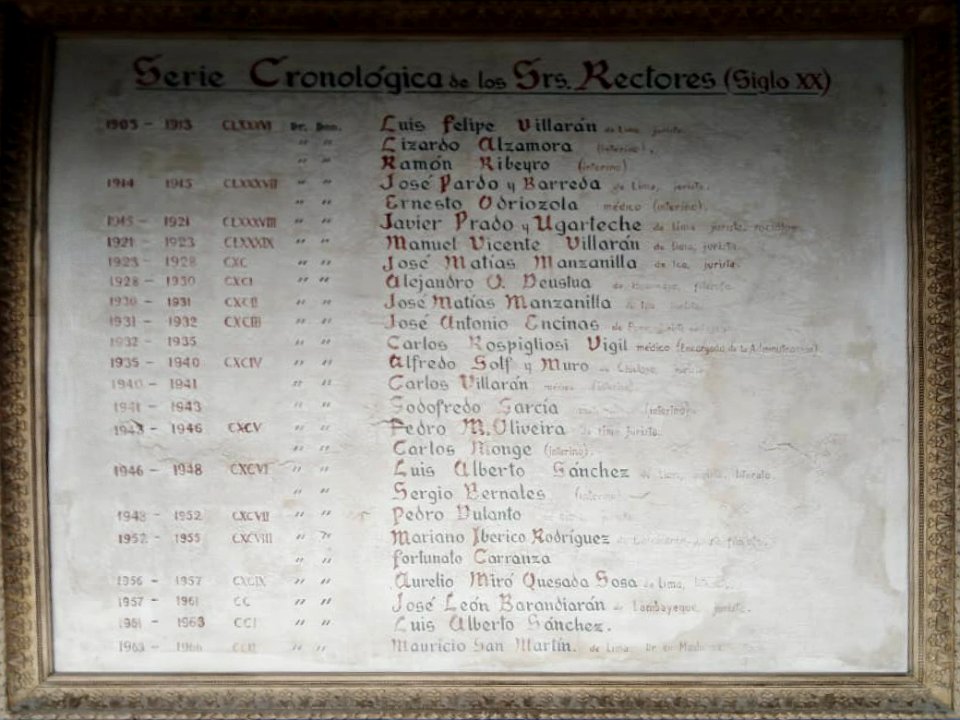 Serie Cronológica de los Srs. Rectores (Siglo XX)
1905 - 1913 CLXXXVI Dr. Don. Luis Felipe Villarán de Lima, jurista.
" " Lizardo Alzamora (interino).
" " Ramón Ribeyro (interino)
1914 1915 CLXXXVII " " José Pardo y Barreda de Lima, jurista.
" " Ernesto Odriozola médico (interino).
1915 - 1921 CLXXXVIII " " Javier Prado y Ugarteche de Lima jurista,
1921 - 1923 CLXXXIX " " Manuel Vicente Villarán de Lima, jurista.
1923 - 1928 CXC " " José Matías Manzanilla de Ica, jurista.
1928 - 1930 CXCI " " Alejandro O. Deustua
1930 - 1931 CXCII " " José Matías Manzanilla
1931 - 1932 CXCIII " " José Antonio Encinas
1932 - 1935 " " Carlos Rospigliosi Vigil médico (Encargado de la Administración)
1935 - 1940 CXCIV " " Alfredo Solf y Muro de Chiclayo,
1940 - 1941 " " Carlos Villarán médico (interino)
1941 - 1943 " " Godofredo García (interino)
1943 - 1946 CXCV " " Pedro M. Oliveira de Lima jurista.
" " Carlos Monge (interino).
1946 - 1948 CXCVI " " Luis Alberto Sánchez de Lima, literato
" " Sergio Bernales (interino)
1948 - 1952 CXCVII " " Pedro Dulanto
1952 - 1955 CXCVIII " " Mariano Iberico Rodríguez
" " Fortunato Carranza
1956 - 1957 CXCIX " " Aurelio Miró Quesada Sosa de Lima,
1957 - 1961 CC " " José León Barandiarán de Lambayeque, jurista.
1961 - 1963 CCI " " Luis Alberto Sánchez.
1963 - 1966 CCII " " Mauricio San Martín. de Lima. Dr en Medicina